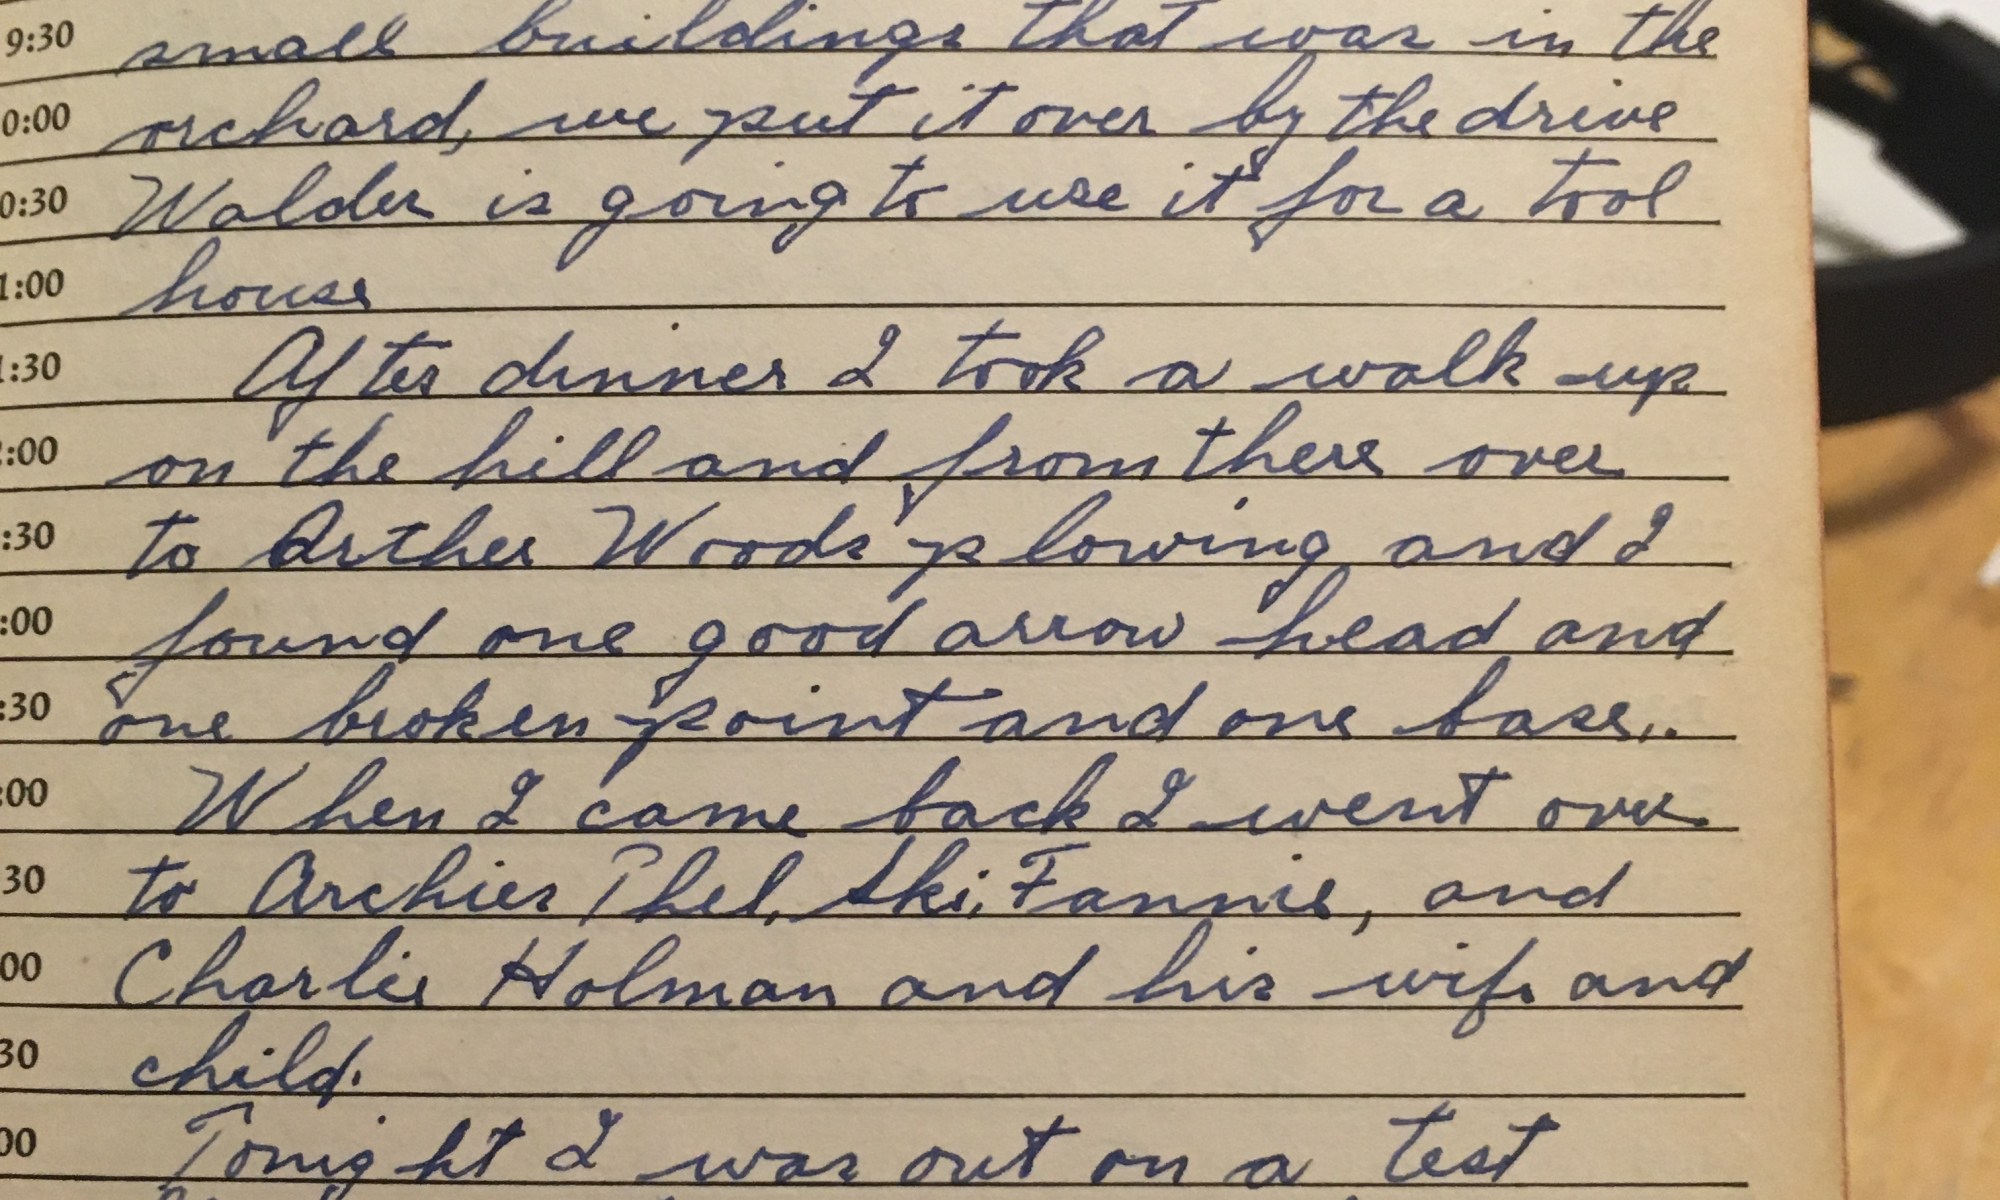 9:30 small buildings that was in the
0:00 orchard, we put it over by the drive
0:30 Walder is going to use it for a tool
1:00 house
1:30 After dinner I took a walk up
:00 on the hill and from there over
:30 to Arther Woods plowing and I
:00 found one good arrow head and
:30 one broken point and one base..
:00 When I came back I went over
30 to Archies Phel, Ski, Fannie, and
00 Charlie Holman and his wife and
30 child.
00 Tonight I was out on a test